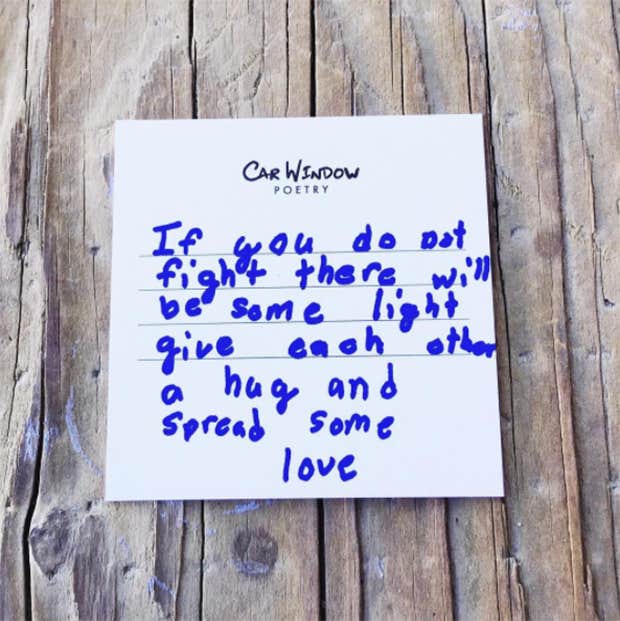 CAR WINDOW
POETRY
If you do not
fight there will
be some light
give each other
a hug and
spread some
love